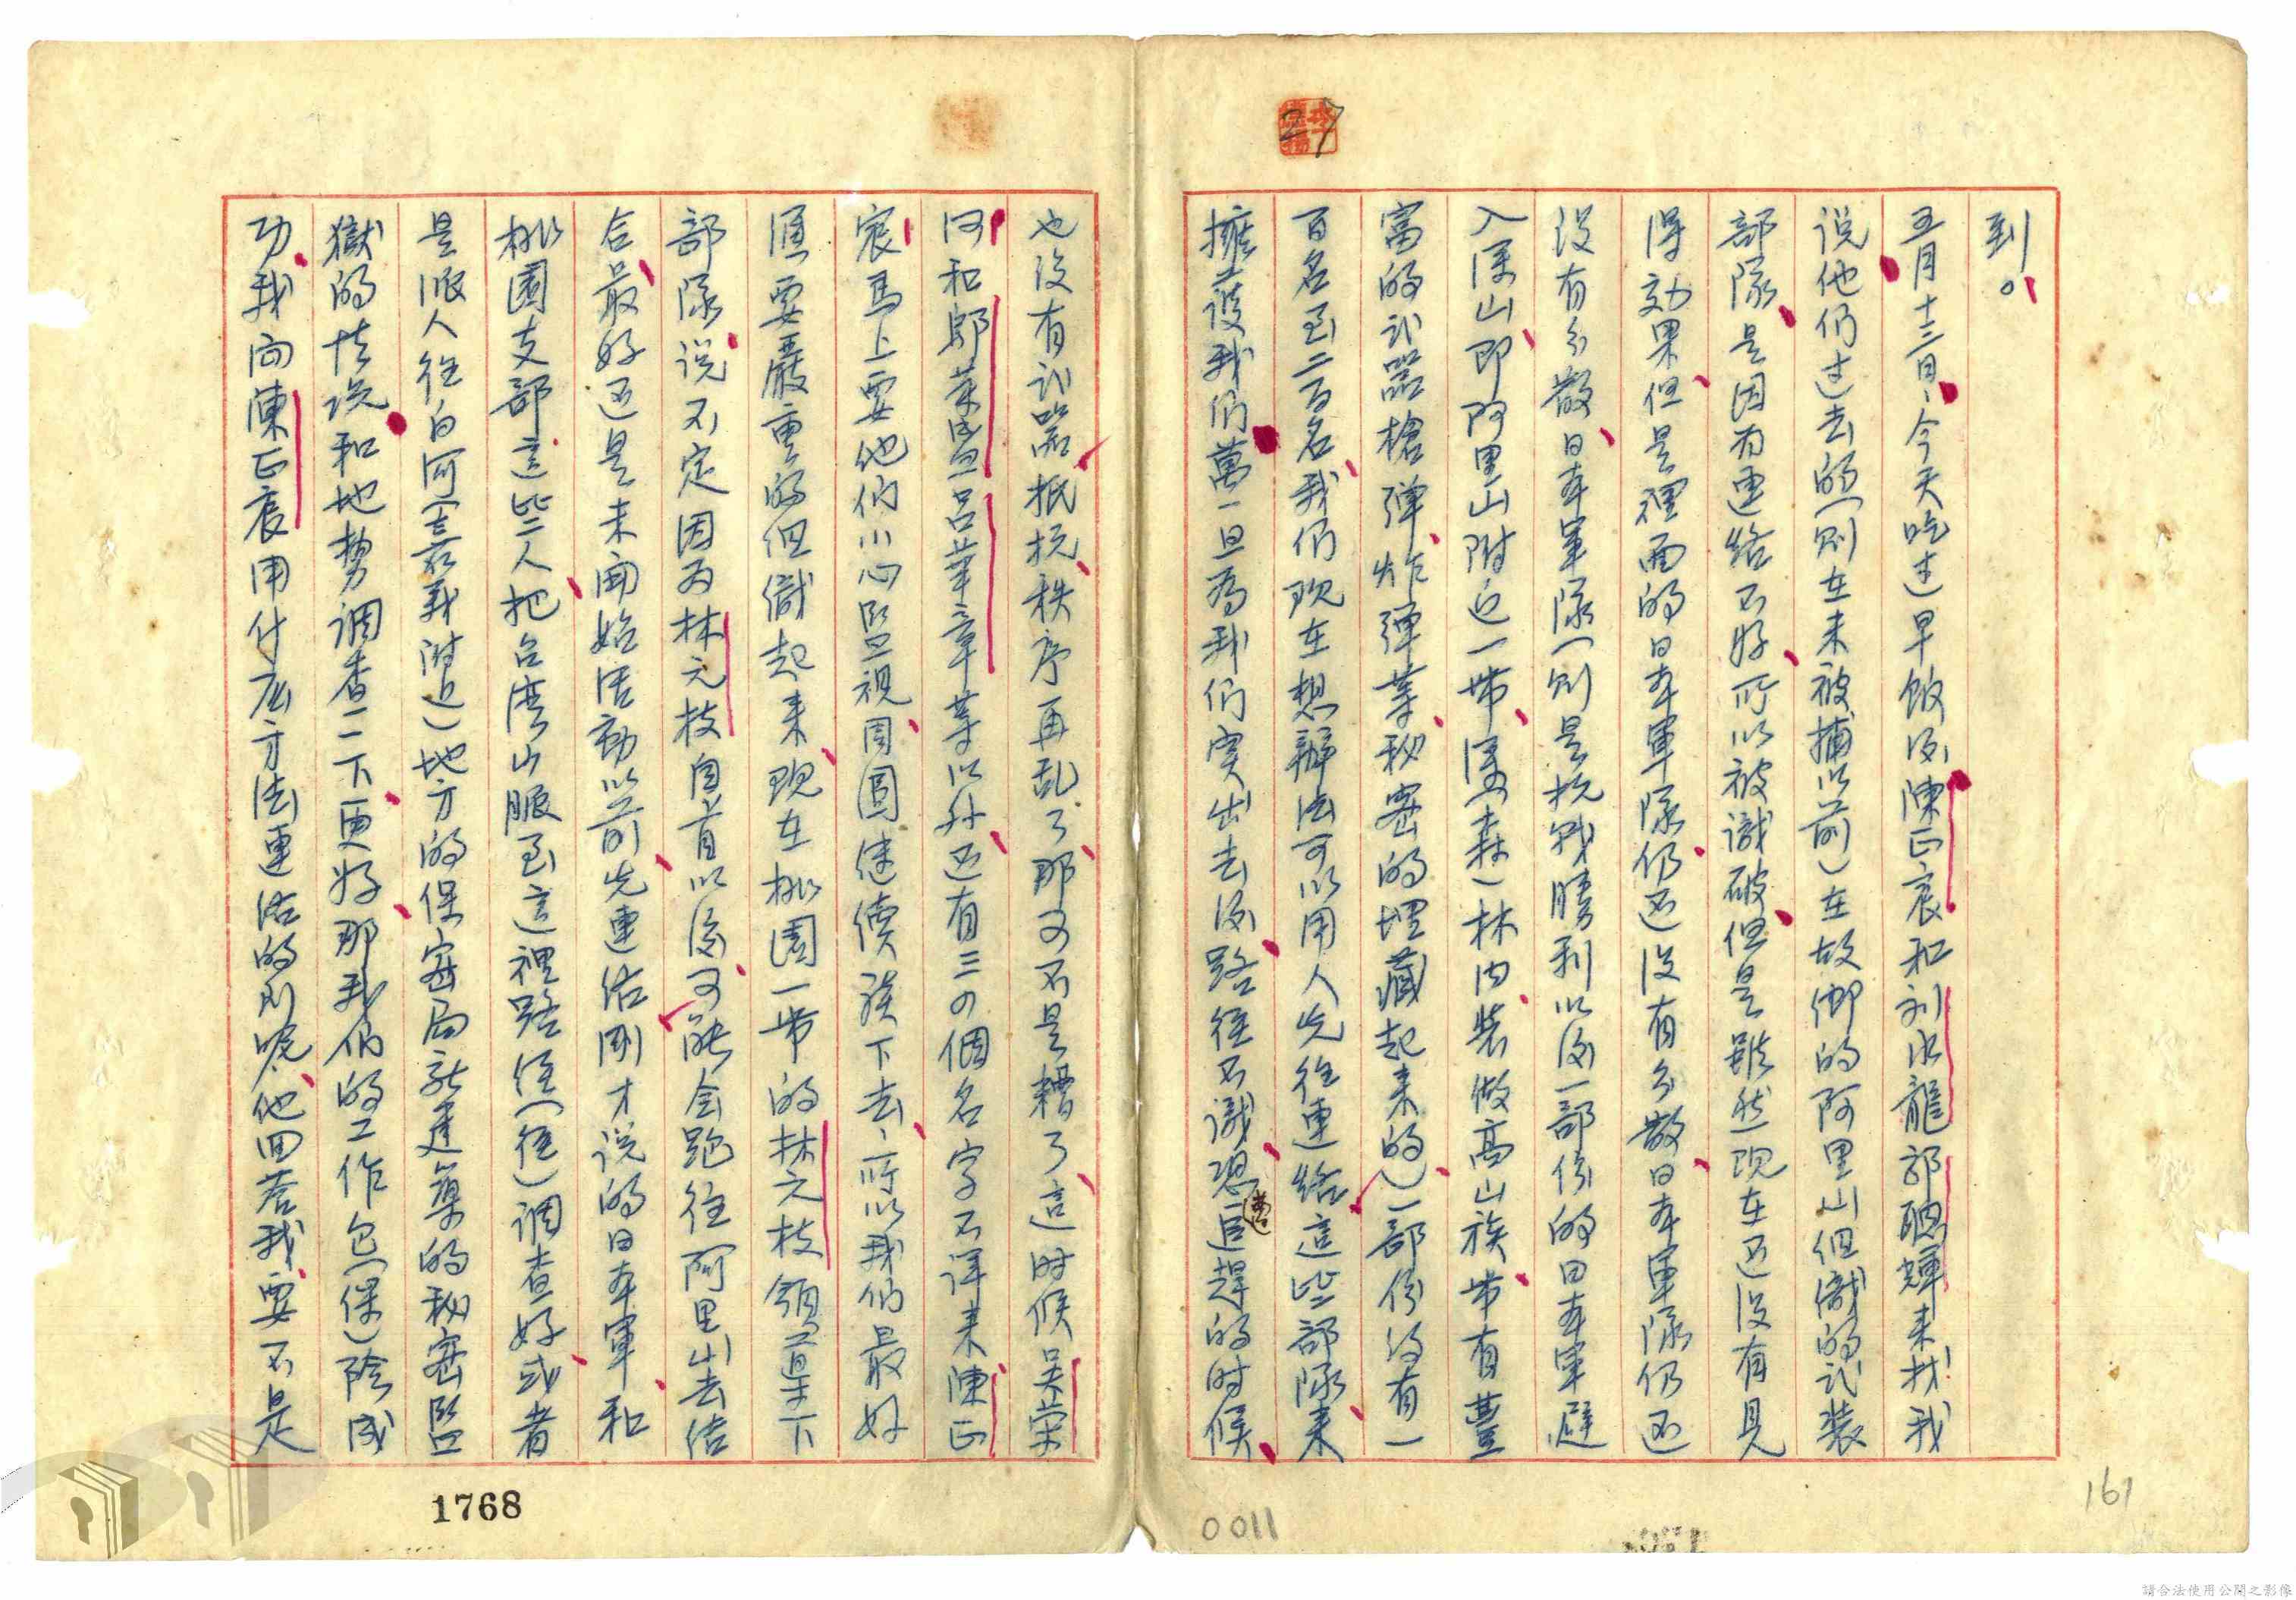 27
到。
五月十三日、今天吃过早飯后陳正宸和刘水龍郭聰輝来找我
说他们过去的(则在未被捕以前)在故鄉的阿里山组織的武装
部隊是因为連絡不好所以被識破但是雖然现在还没有見
得効果但是裡面的日本軍隊仍还没有分散日本軍隊仍还
没有分散日本軍隊(则是抗战勝利以后一部份的日本軍避
入深山即阿里山附近一带深(森)林内装做高山族带有豐
富的武器槍弹炸彈等秘密的埋藏起来的)一部份约有一
百名至二百名我们现在想辦法可以用人先往連絡這些部隊来
擁護我们萬一旦為我们突出去后路徑不識恐追趕的时候
也没有武器抵抗秩序再乱了那可不是糟了這时候吴荣
河和鄔菜盛吕華章等以外还有三四個名字不详来陳正
宸马上要他们小心監視周圍继續談下去,所以我们最好
須要嚴重的组織起来现在桃園一带的林元枝領導下
部隊说不定因为林元枝自首以后可能会跑往阿里山去结
合最好还是未開始活動以前先連络剛才说的日本軍和
桃園支部這些人把台湾山脈至這裡路径(徑)調查好或者
是派人往白河(嘉義附近)地方的保密局新建築的秘密監
獄的情况和地势調查一下更好那我们的工作包(保)险成
功我向陳正宸用什么方法連络的别呢他回荅我要不是
1768
0011
161
請合法使用公開之影像